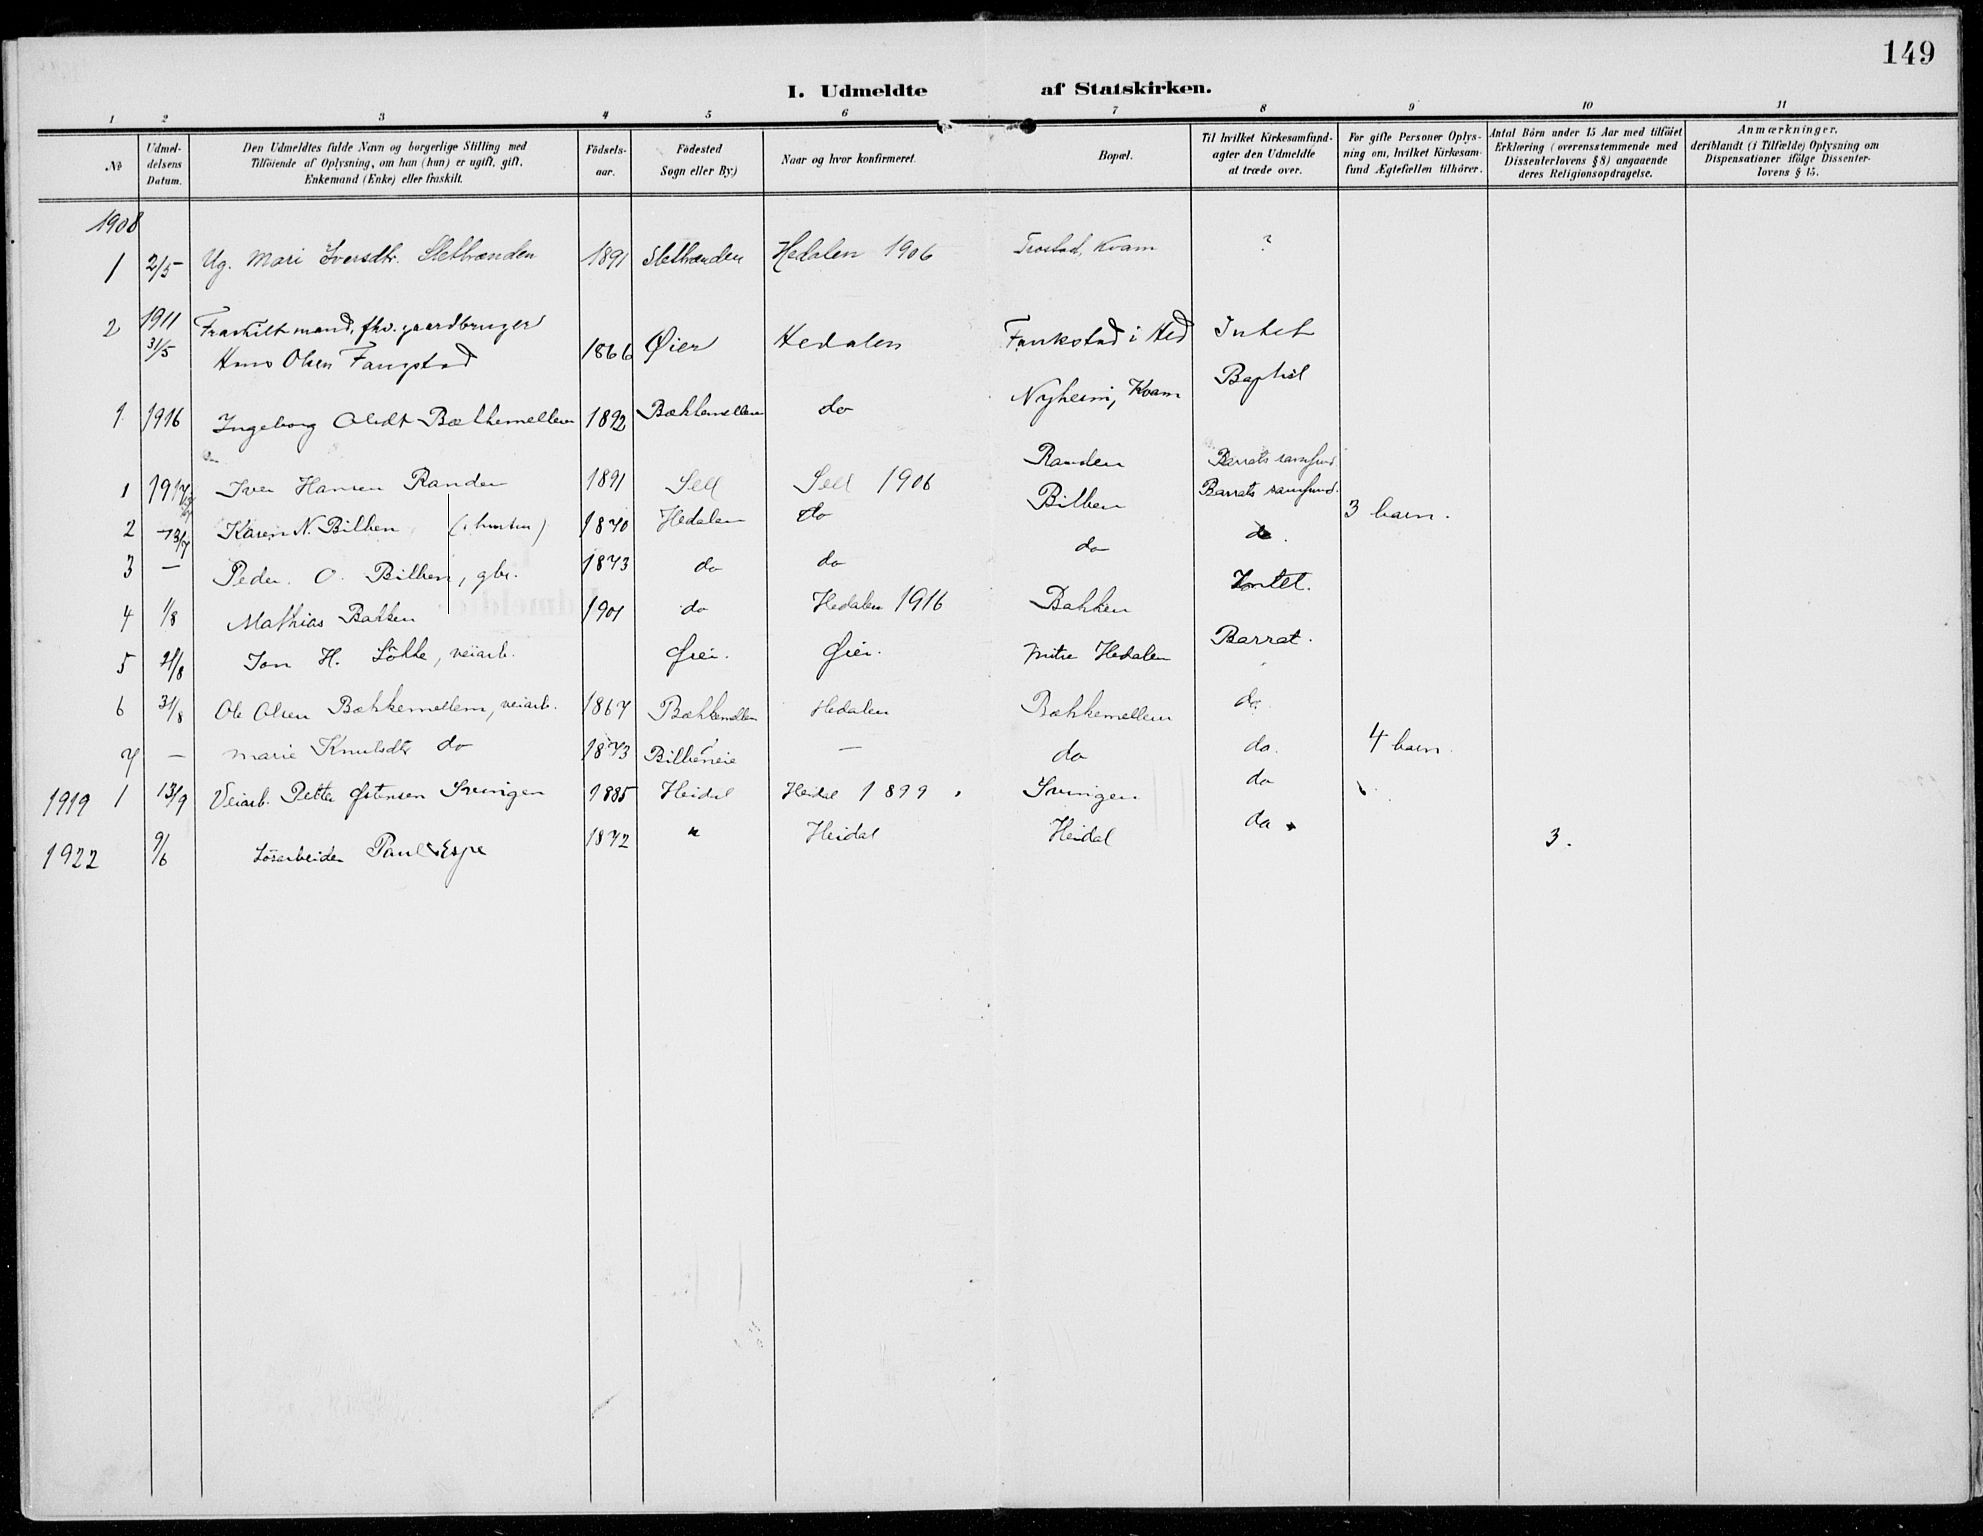 149
I. Udmeldte af Statskirken.
1 2 3 4 5 6 7 8 9 10 11
№
Udmeldelsens Datum.
Den Udmeldtes fulde Navn og borgerlige Stilling med
Tilföiende af Oplysning, om han (hun) er ugift, gift,
Enkemand (Enke) eller fraskilt.
Födselsaar.
Födested
Sogn eller By.)
Naar og hvor konfirmeret.
Bopæl.
Til hvilket Kirkesamfund-
agter den Udmeldte
at træde over.
For gifte Personer Oplys-
ning om, hvilket Kirkesam-
fund Ægtefællen tilhörer.
Antal Börn under 15 Aar med tilföiet
Erklæring (overensstemmende med
Dissenterlovens § 8) angaaende
deres Religionsopdragelse.
Anmærkninger,
deriblandt (i Tilfælde) Oplysning om
Dispensationer ifölge Dissenter-
lovens § 15.
1908
1 2/5 Ug. Mari Iversdtr. Sletbrænden 1891 Sletbrænden Hedalen 1906 Trostad, Kvam ?
2 1911 Fraskilt mand, fhv. gaardbruger
31/5 Hans Olsen Fangstad 1866 Øier Hedalen Fankstad i Hed Intet
1. 1916 Ingeborg Olsdt Bækkemellem 1892 Bækkemellem do Nyheim, Kvam Baptist
1 1917 Iver Hansen Randen 1891 Sell Sell 1906 Randen Barrats samfund
2 -13/7 Karen N. Bilben (i hustru) 1870 Hedalen do Bilben Barrats samfund. 3 barn.
3 — Peder. O. Bilben, gbr. 1873 do do do do.
4 1/8 Mathias Bakken 1901 do Hedalen 1916 Bakken Intet.
5 21/8 Jon H. Løkke, veiarb. Øier. Øier. Hedalen Barrat.
6 31/8 Ole Olsen Bækkemellem, veiarb. 1867 Bækkemellem Hedalen Bækkemellem do.
7 — Marie Knutsdtr do 1873 Bilbeneie — do do. 4 barn.
1919 1 13/9 Veiarb. Petter Østensen Svingen 1885 Heidal Heidal 1899. Svingen do
1922 9/6 Løsarbeider Paul Espe 1872 " Heidal Heidal do 3.